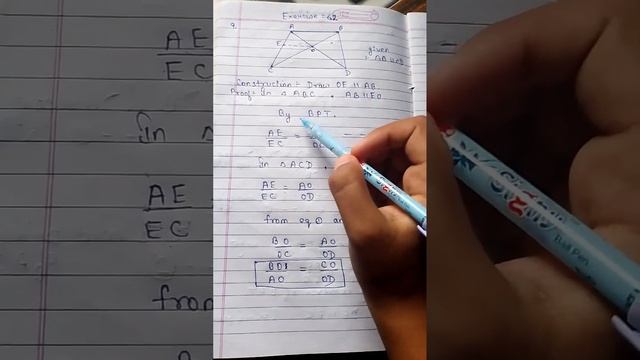 Exercise - 6.2
9.
A B
E O
C D
given
= AB || CD
Construction - Draw OE || AB
Proof - In △ ABC , AB || EO
By BPT.
AE/EC = /OC
In △ ACD ,
AE/EC = AO/OD
from eq ① an
BO/OC = AO/OD
BO/AO = CO/OD
AE
EC
In
AE
EC
from
Ball Pen